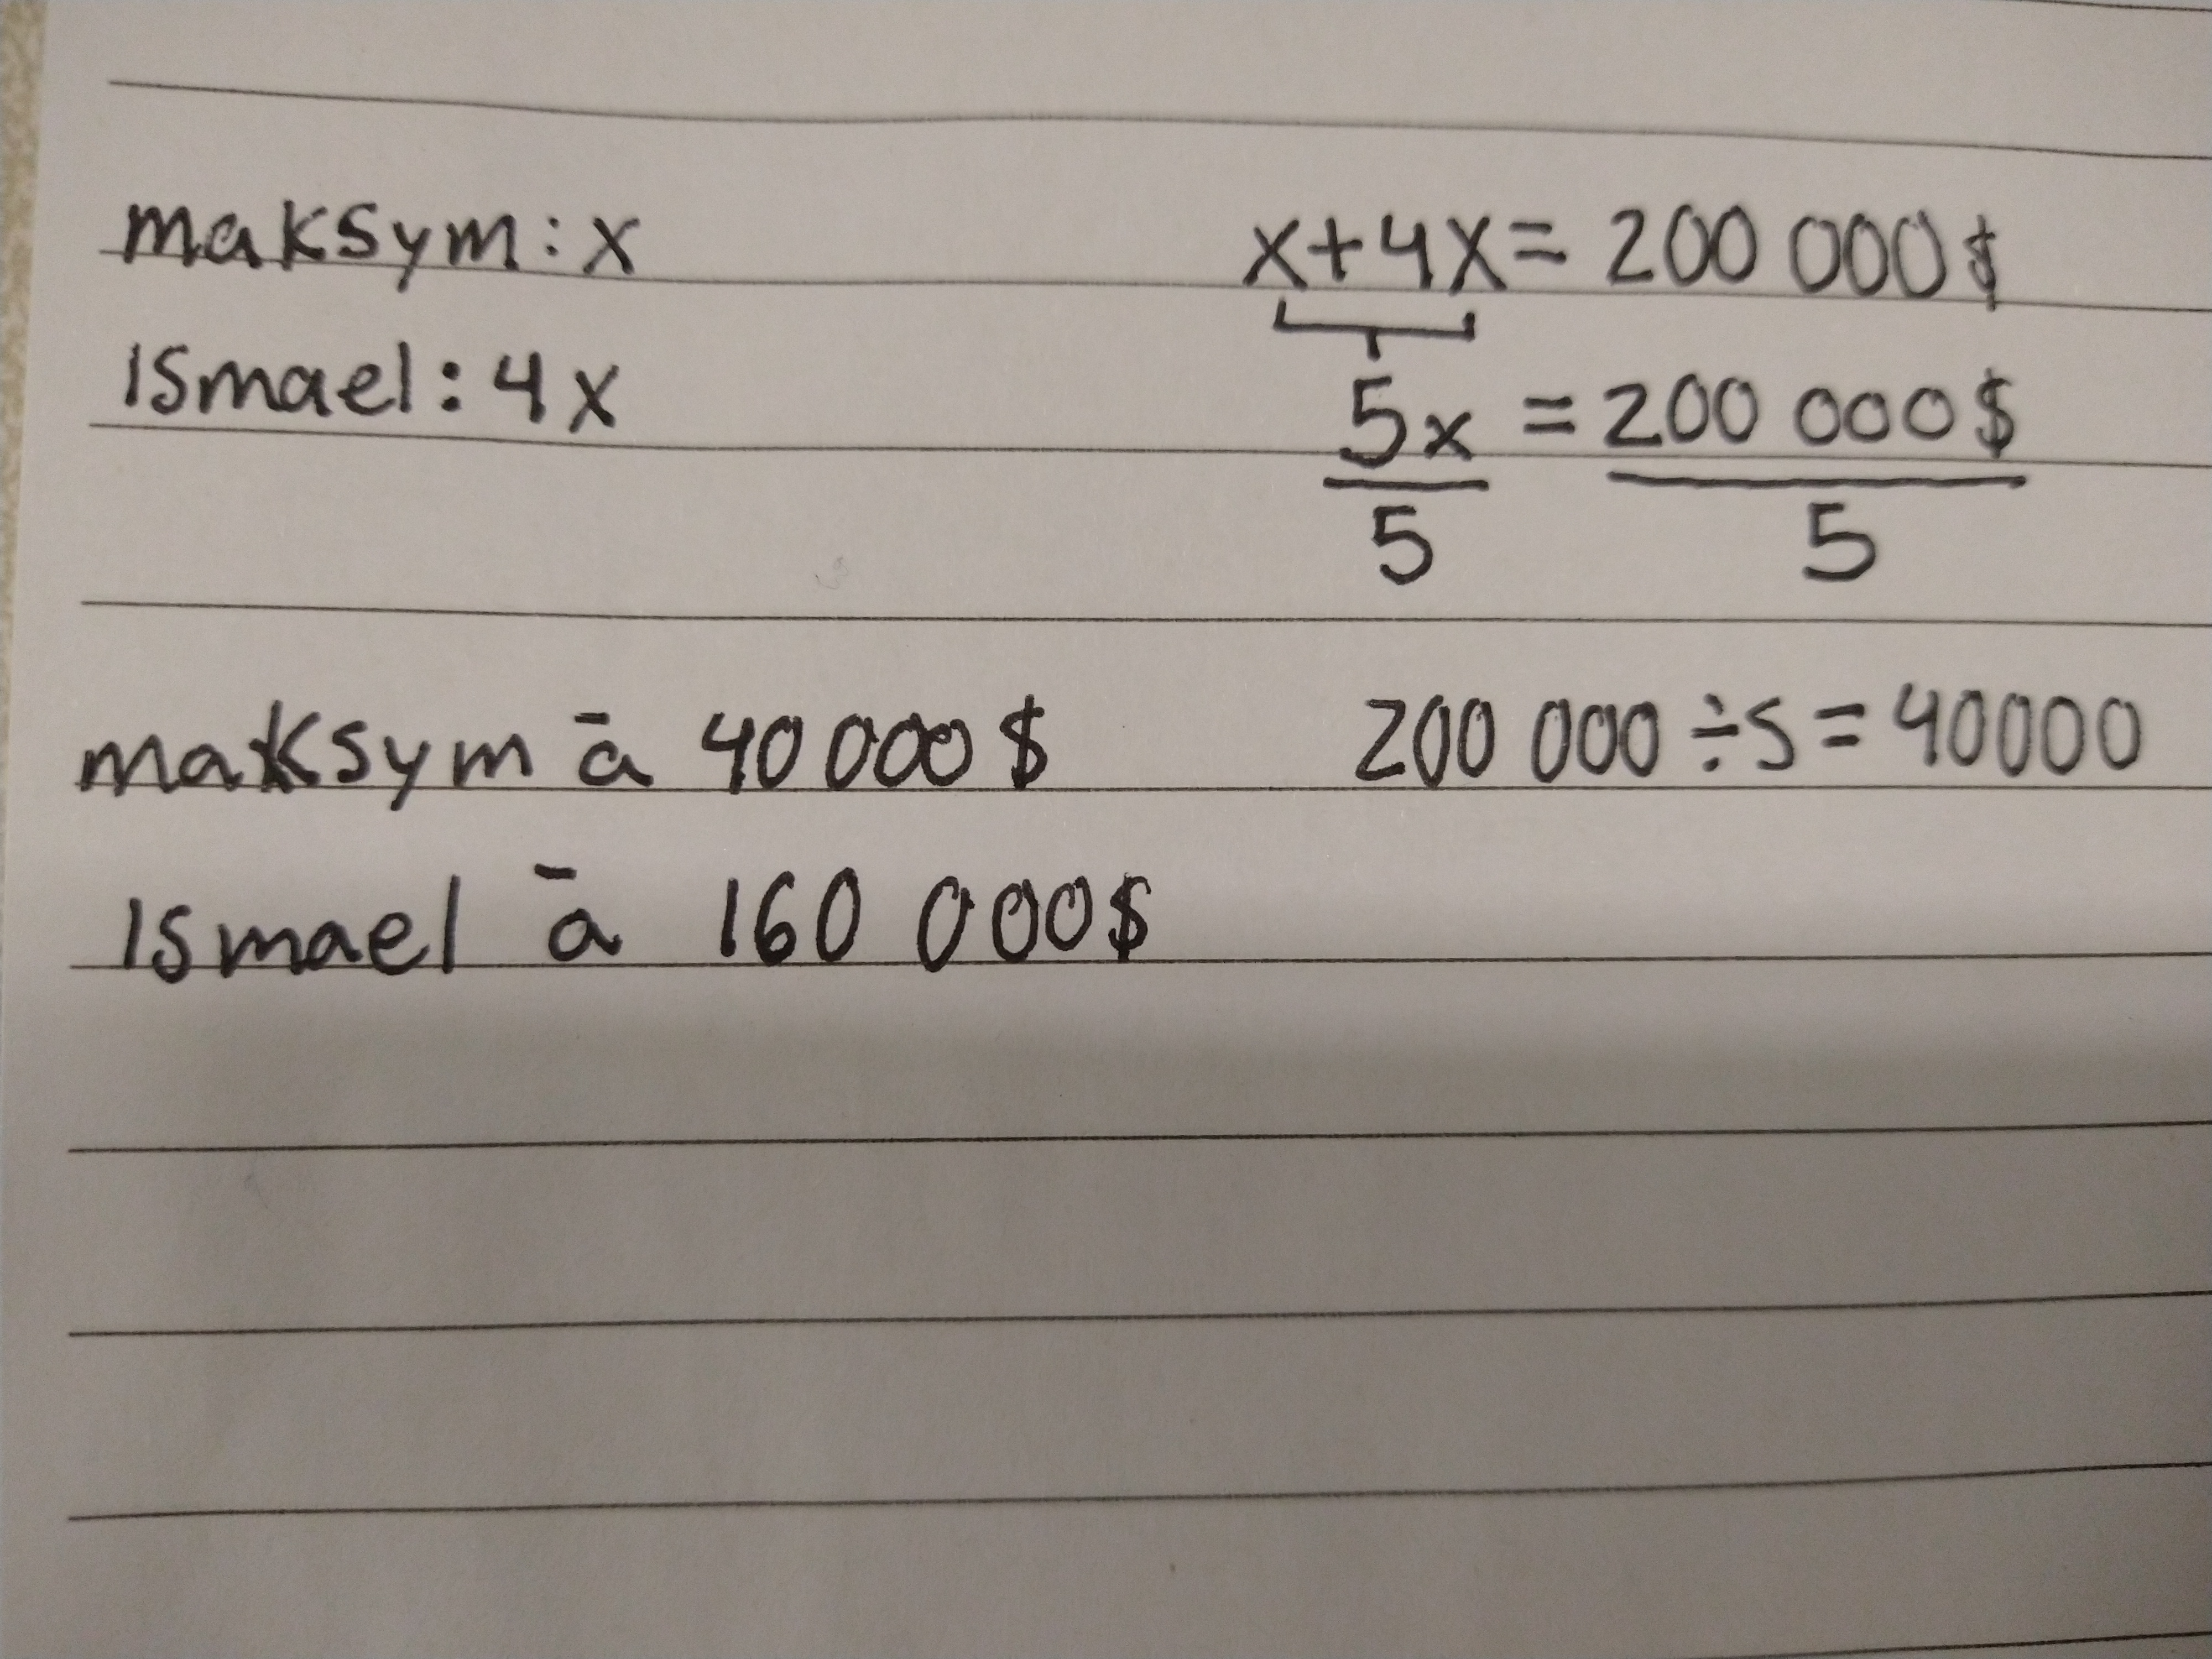 maksym: x
x+4x= 200 000$
ismael: 4x
5x = 200 000$
5 5
maksym ā 40 000 $
200 000 ÷5 = 40000
ismael ā 160 000$